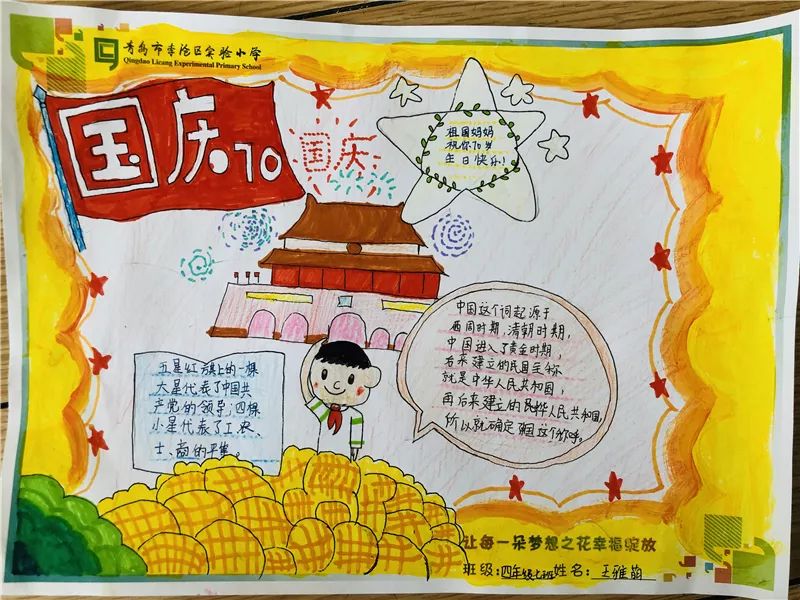 青岛市李沧区实验小学
Qingdao Licang Experimental Primary School
国庆70
国庆
祖国妈妈
祝你70岁
生日快乐!
中国这个词起源于
西周时期,清朝时期,
中国进入了黄金时期,
后来建立的民国全称
就是中华人民共和国,
再后来建立的
人民共和国,
所以就确定
国这个
五星红旗上的一颗
大星代表了中国共
产党的领导;四颗
小星代表了工、农、
士、商的平等。
让每一朵梦想之花幸福绽放
班级:四年级七班姓名:王雅